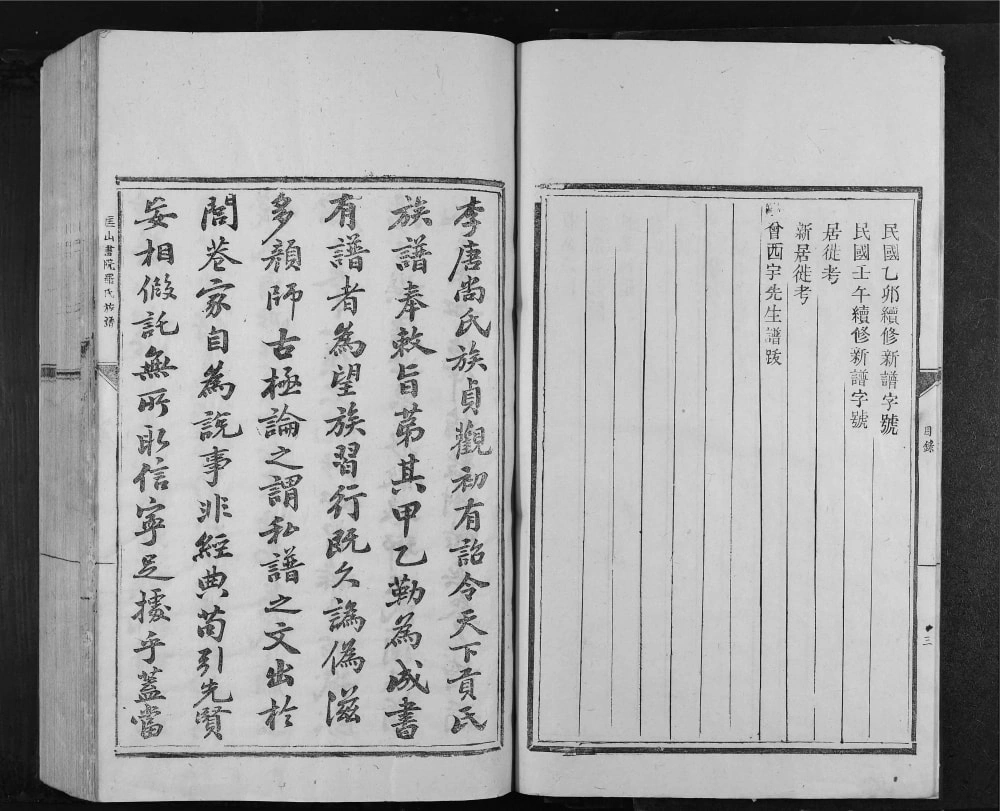 民國乙卯續修新譜字號
民國壬午續修新譜字號
居徙考
新居徙考
曾西宇先生譜跋
目錄
三
李唐尚氏族貞觀初有詔令天下貢氏
族譜奉敕旨第其甲乙勒為成書
有譜者為望族習行既久譌偽滋
多顏師古極論之謂私譜之文出於
閭巷家自為說事非經典苟引先賢
妄相假託無所取信寧足據乎蓋當
匡山書院羅氏族譜